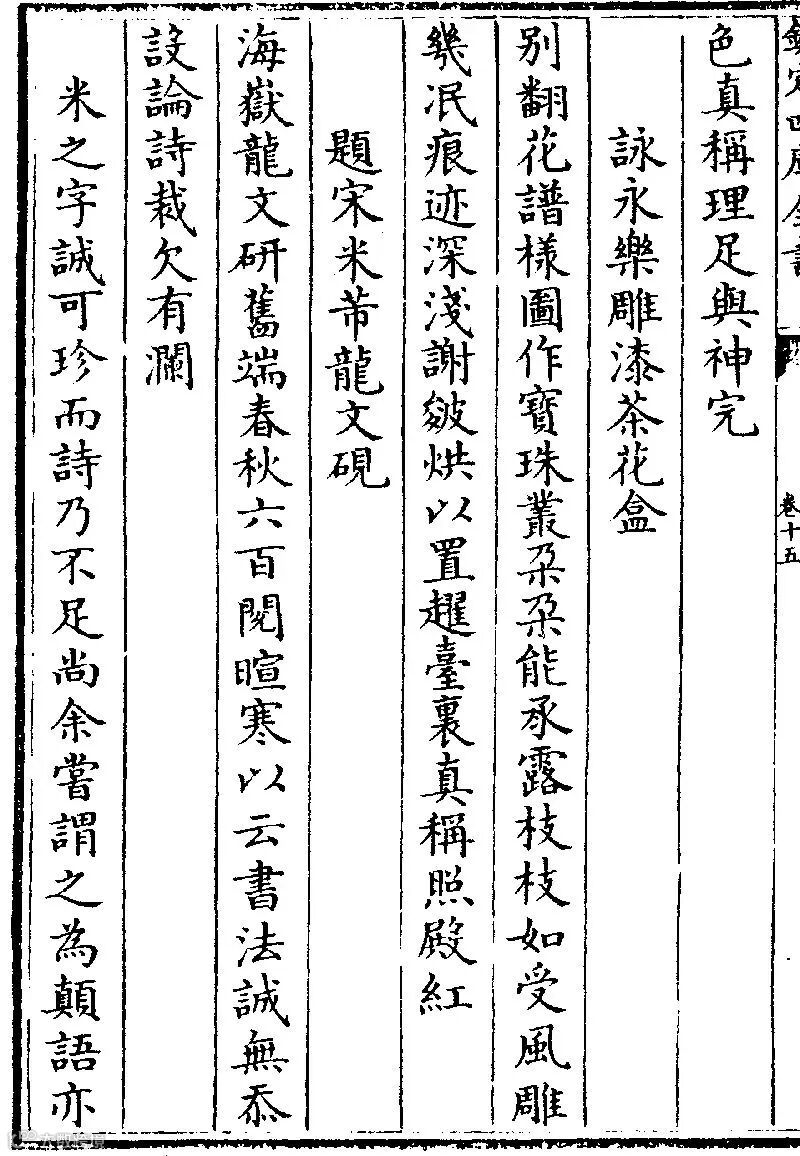 卷十五
色真稱理足與神完
詠永樂雕漆茶花盒
別翻花譜樣圖作寶珠叢朶朶能承露枝枝如受風雕
幾泯痕迹深淺謝皴烘以置趯臺裏真稱照殿紅
題宋米芾龍文硯
海嶽龍文硏舊端春秋六百閱暄寒以云書法誠無忝
設論詩裁欠有瀾
米之字誠可珍而詩乃不足尚余嘗謂之為顛語亦